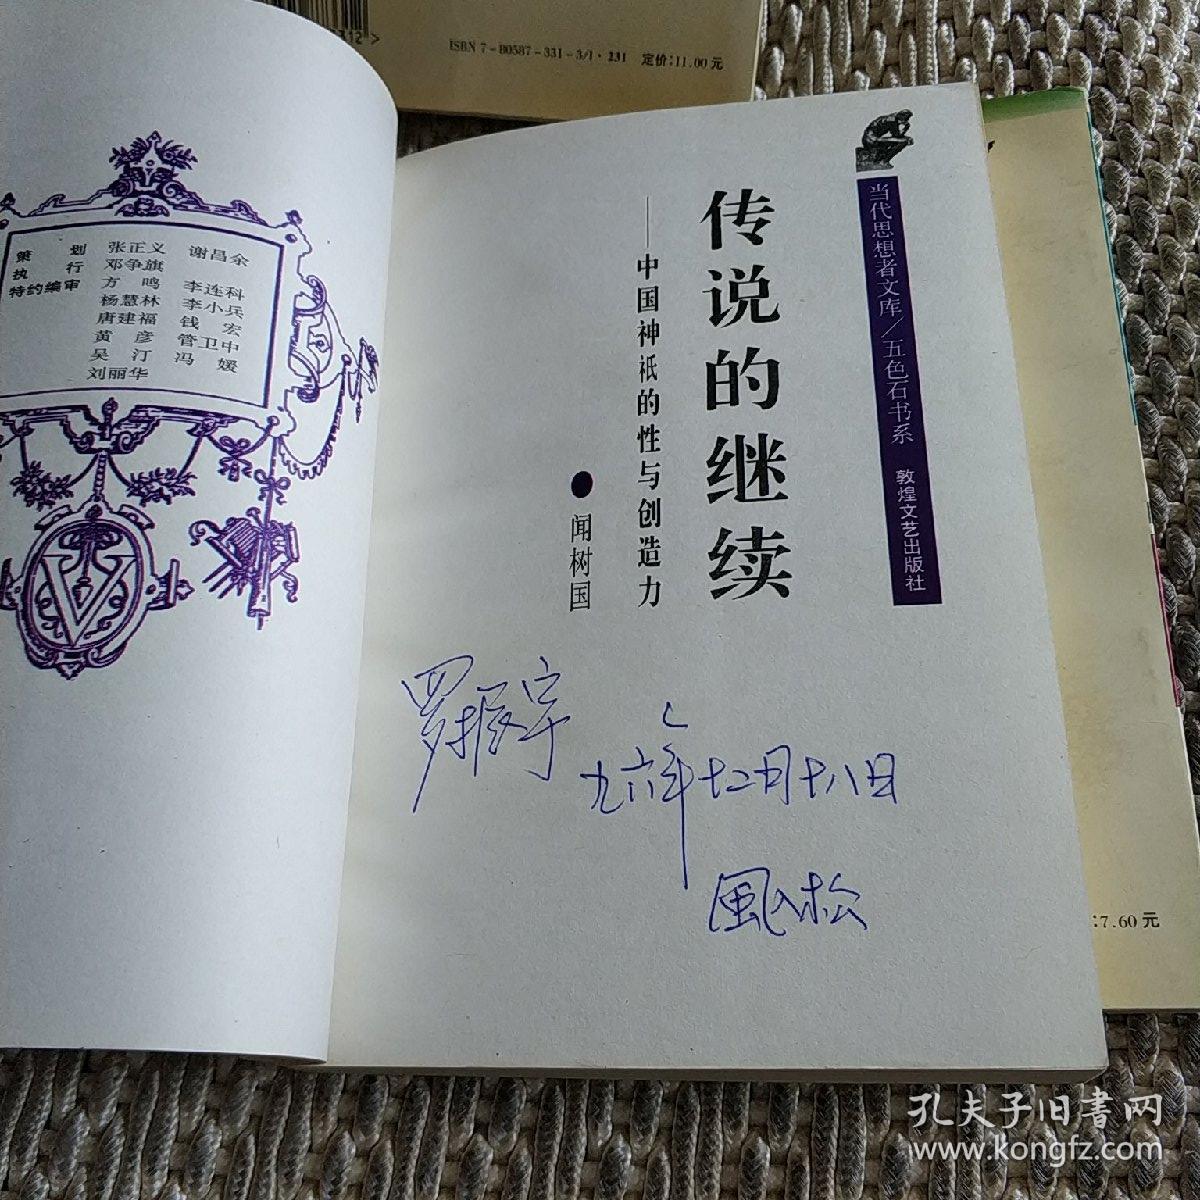 312>
ISBN 7-80587-331-3/I·231 定价:11.00元
策 划 张正义 谢昌余
执 行 邓争旗
特约编审 方 鸣 李连科
杨慧林 李小兵
唐建福 钱 宏
黄 彦 管卫中
吴 汀 冯 媛
刘丽华
当代思想者文库/五色石书系 敦煌文艺出版社
传说的继续
——中国神祇的性与创造力
●闻树国
罗振宇
九六年十二月十八日
風入松
:7.60元
孔夫子旧書网
www.kongfz.com